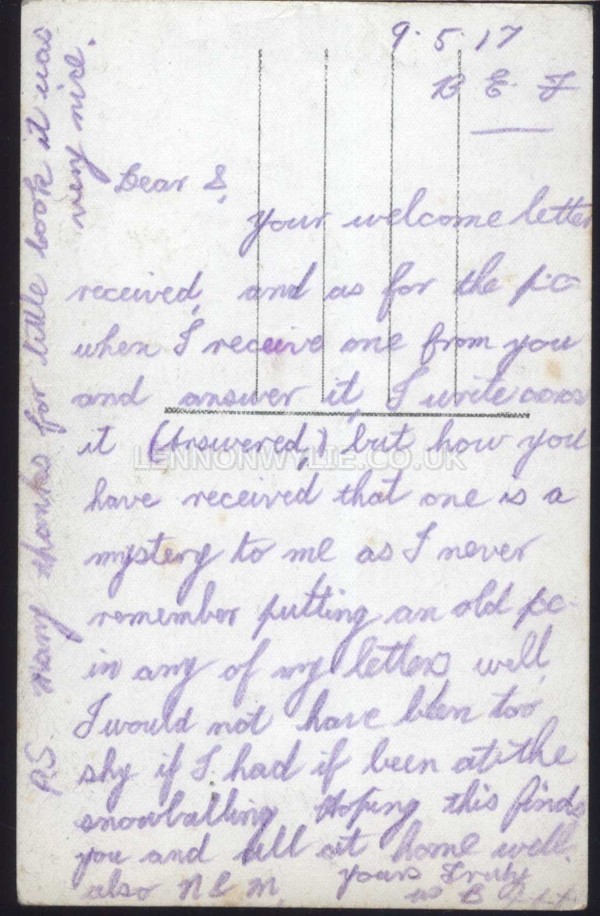 9.5.17
B E F
Dear S,
your welcome letter
received, and as for the p.c
when I receive one from you
and answer it, I write
it (Answered,) but how you
have received that one is a
mystery to me as I never
remember putting an old p.c
in any of my letters, well,
I would not have been too
shy if I had if been at the
snowballing Hoping this finds
you and all at home well.
also N & M, yours Truly
as B
P.S Many thanks for little book it was
very nice.
LENNONWYLIE.CO.UK